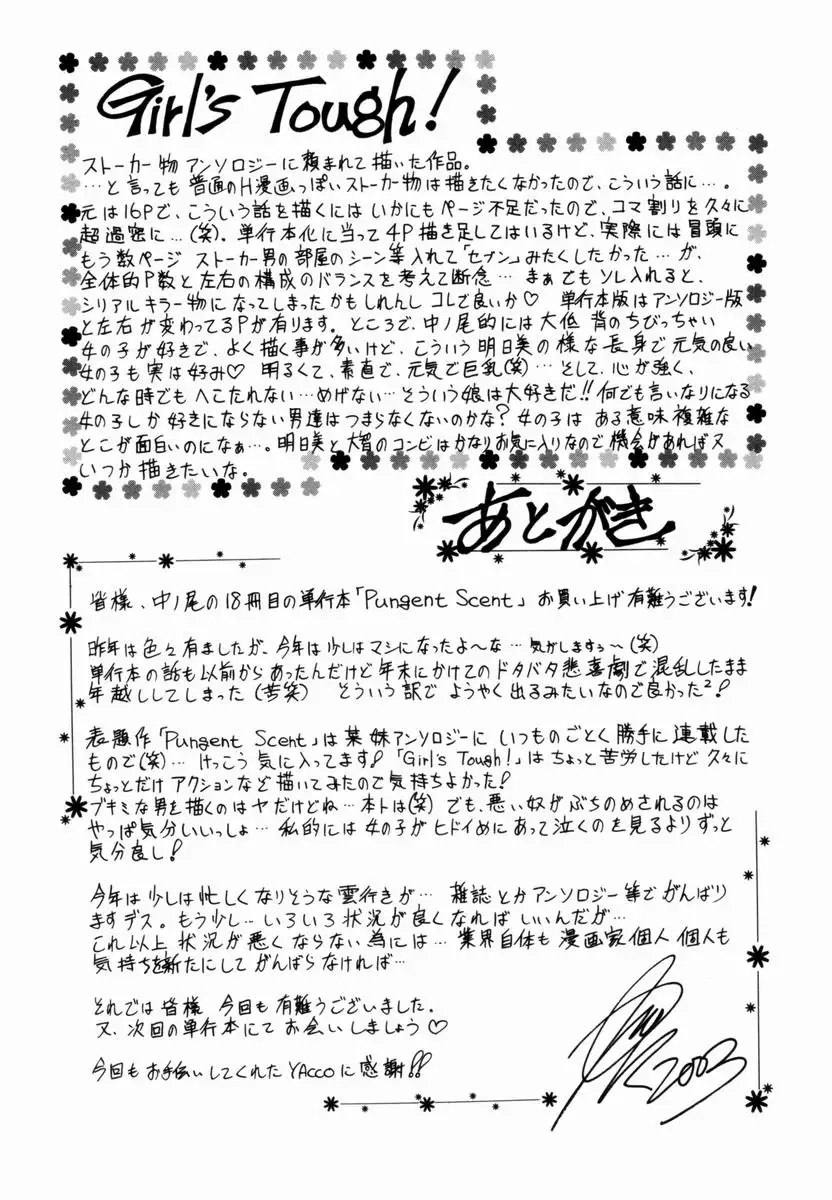 Girl's Tough!
ストーカー物アンソロジーに頼まれて描いた作品。
…と言っても普通のH漫画っぽいストーカー物は描きたくなかったので、こういう話に…。
元は16Pで、こういう話を描くにはいかにもページ不足だったので、コマ割りを久々に
超過密に…(笑)。単行本化に当って4P描き足してはいるけど、実際には冒頭に
もう数ページ ストーカー男の部屋のシーン等入れて「セブン」みたくしたかった…が、
全体的P数と左右の構成のバランスを考えて断念… まぁでもソレ入れると、
シリアルキラー物になってしまったかもしれんし コレで良いか♡ 単行本版はアンソロジー版
と左右が変わってるPが有ります。ところで、中ノ尾的には大低 背のちびっちゃい
女の子が好きで、よく描く事が多いけど、こういう明日美の様な長身で元気の良い
女の子も実は好み♡ 明るくて、素直で、元気で巨乳(笑)… そして、心が強く、
どんな時でもへこたれない…めげない…そういう娘は大好きだ!!何でも言いなりになる
女の子しか好きにならない男達はつまらなくないのかな?女の子は ある意味複雑な
とこが面白いのになぁ…。明日美と大智のコンビはかなりお気に入りなので機会があれば又
いつか描きたいな。
あとがき
皆様、中ノ尾の18冊目の単行本「Pungent Scent」お買い上げ有難うございます!
昨年は色々有りましたが、今年は少しはマシになったよ〜な…気がしますぅ〜(笑)
単行本の話も以前からあったんだけど年末にかけてのドタバタ悲喜劇で混乱したまま
年越ししてしまった(苦笑) そういう訳で ようやく出るみたいなので良かった²!
表題作「Pungent Scent」は某妹アンソロジーに いつものごとく勝手に連載した
もので(笑)… けっこう気に入ってます!「Girl's Tough!」はちょっと苦労したけど久々に
ちょっとだけアクションなど描いてみたので気持ちよかった!
ブキミな男を描くのはヤだけどね…本トは(笑) でも、悪い奴がぶちのめされるのは
やっぱ気分いいっしょ… 私的には女の子がヒドイめにあって泣くのを見るよりずっと
気分良し!
今年は少しは忙しくなりそうな雲行きが… 雑誌とかアンソロジー等でがんばり
ますデス。もう少し…いろいろ状況が良くなればいいんだが…
これ以上 状況が悪くならない為には… 業界自体も漫画家個人個人も
気持ちを新たにしてがんばらなければ…
それでは皆様 今回も有難うございました。
又、次回の単行本にてお会いしましょう♡
今回もお手伝いしてくれたYAccoに感謝!!
2003